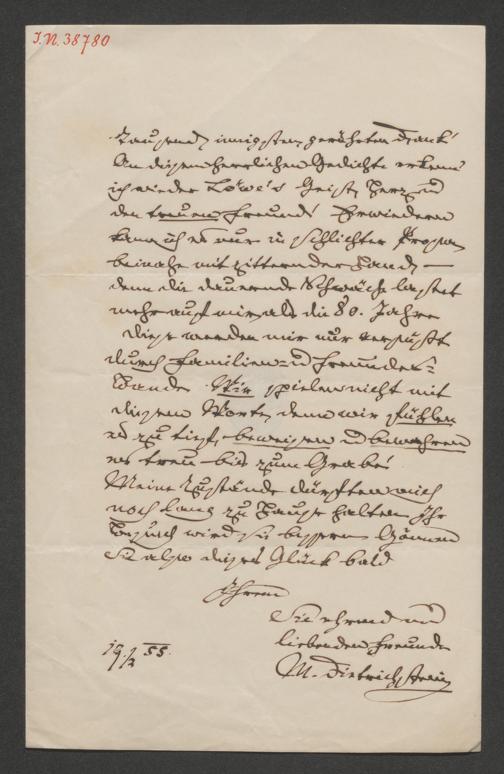 I.N. 38780
Tausend innigsten, gerührten Dank!
An diesem herrlichen Gedichte erkenn'
ich wieder Löwe's Geist, Herz und
den treuen Freund! Erwiedern
kann ich es nur in schlichter Prosa,
beinahe mit zitternder Hand, —
denn die dauernde Schwäche lastet
mehr auf mir, als die 80. Jahre
diese werden mir nur versüßt
durch Familien- und Freundes-
Bande. Wir spielen nicht mit
diesem Worte, denn wir fühlen
es zu tief, beweisen und bewahren
es treu bis zum Grabe!
Meine Zustände dürften mich
noch lang zu Hause halten. Ihr
Besuch wird sie bessern. Gönnen
Sie also dieses Glück bald
Ihrem
Sie ehrend und
liebenden Freunde
M. Dietrichstein
19/2 55.